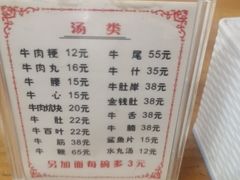 汤 类
牛肉粳 12元 牛 尾 55元
牛肉丸 16元 牛 什 35元
牛 腰 15元 牛肚岸 38元
牛 心 15元 金钱肚 38元
牛肉焿块 20元 牛 舌 38元
牛 肚 22元 牛 腩 38元
牛百叶 22元 鲨鱼片 15元
牛 筋 38元 水丸汤 12元
牛 鞭 65元
另加面每碗多3元